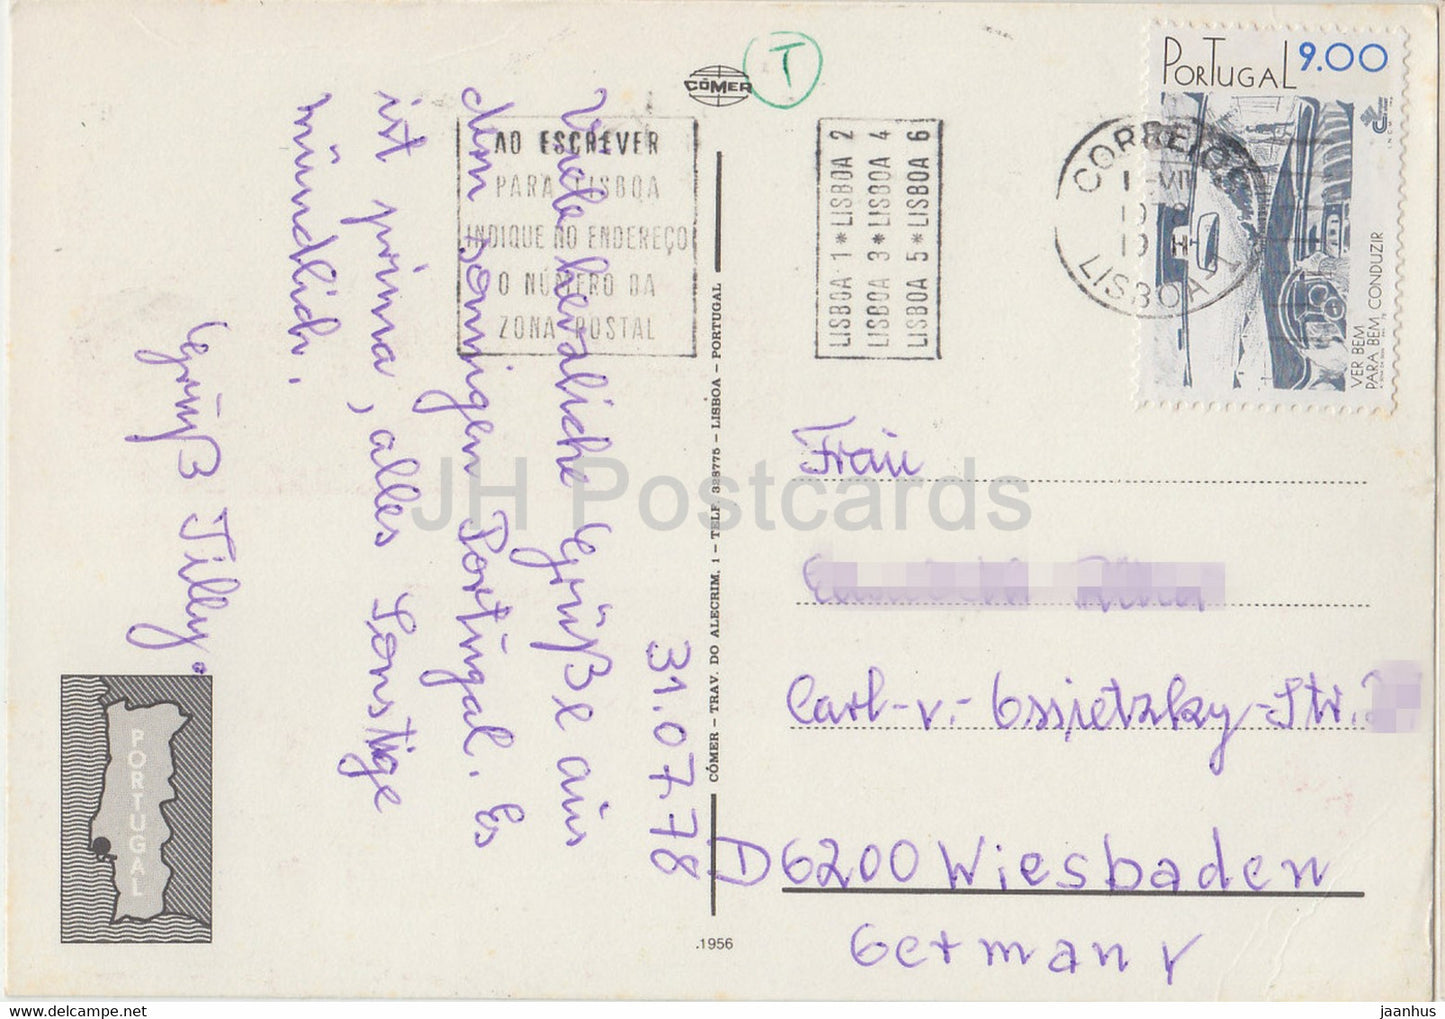 Viele herzliche Grüße aus
dem sonnigen Portugal. Es
ist prima, alles Sonstige
mündlich.
Gruß Tilly.
31.07.78
CÓMER
T
AO ESCREVER
PARA LISBOA
INDIQUE NO ENDEREÇO
O NÚMERO DA
ZONA POSTAL
LISBOA 1 * LISBOA 2
LISBOA 3 * LISBOA 4
LISBOA 5 * LISBOA 6
CORREIOS
LISBOA
PORTUGAL 9.00
VER BEM
PARA BEM CONDUZIR
CÓMER – TRAV. DO ALECRIM, 1 – TELF. 328775 – LISBOA – PORTUGAL
.1956
PORTUGAL
Frau
Carl-v.-Ossietzky-Str.
D6200 Wiesbaden
Germany
JH Postcards
www.delcampe.net
jaanhus